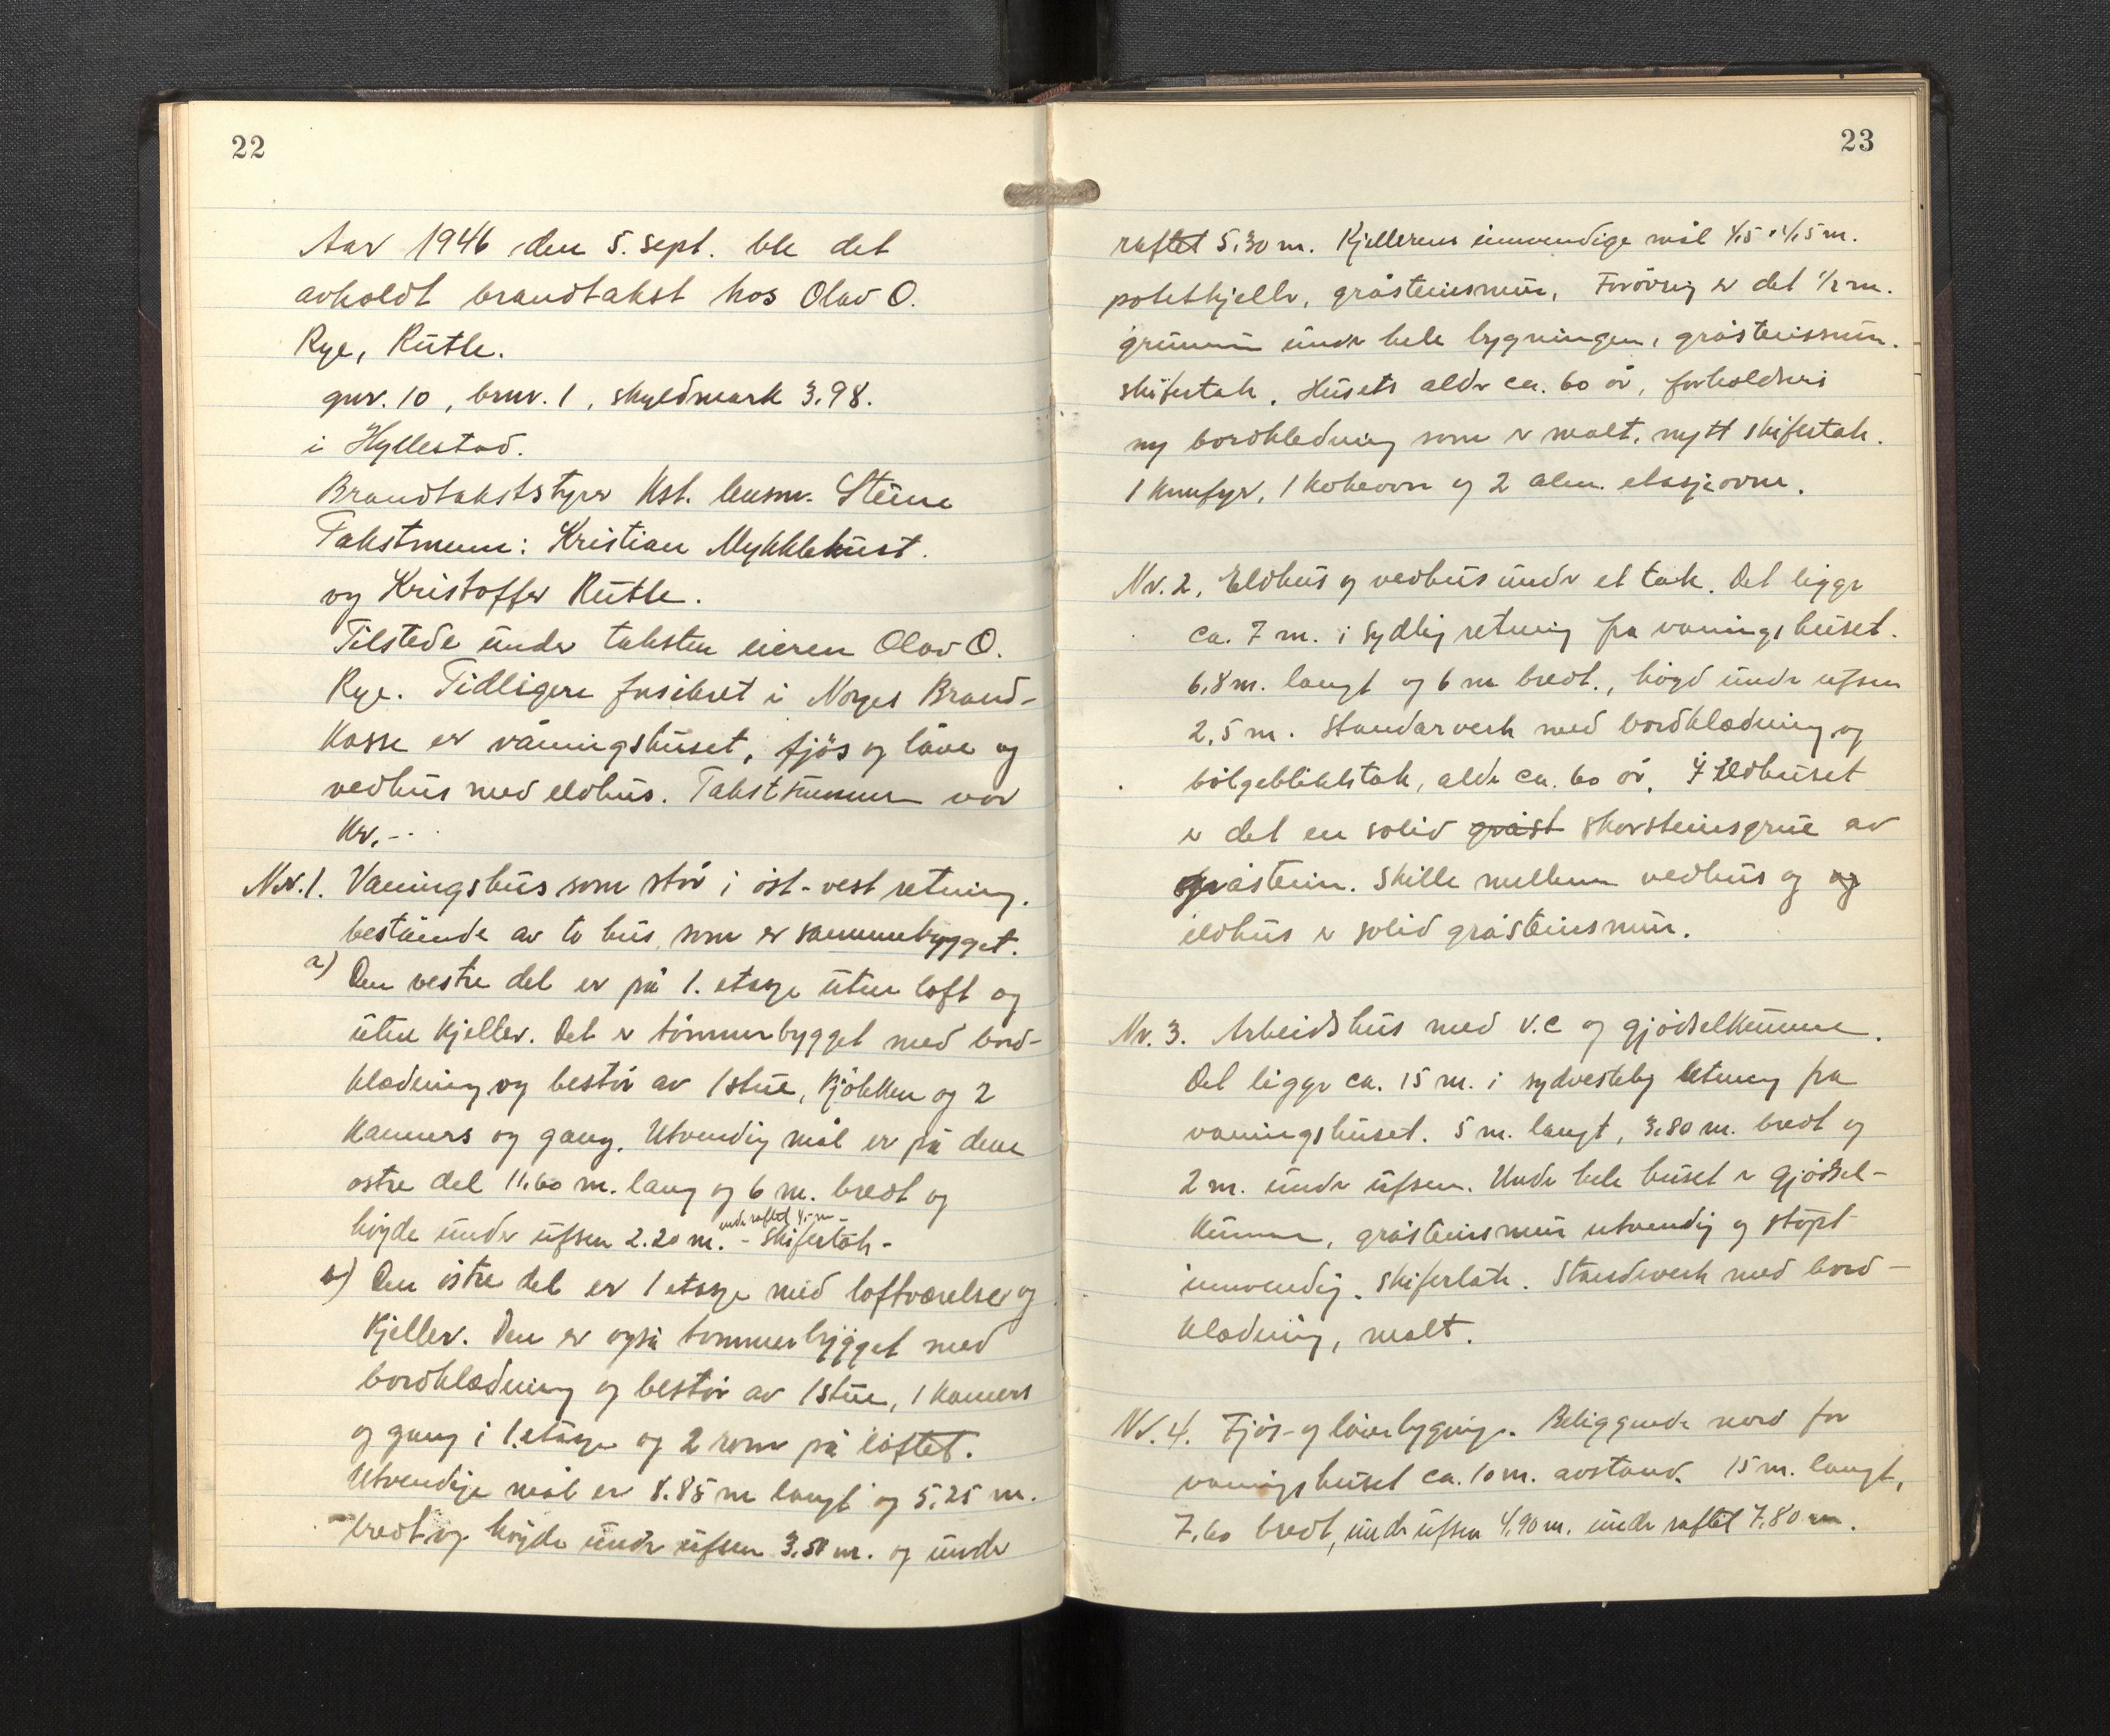 22
Aar 1946 den 5. sept. ble det
avholdt brandtakst hos Olav O.
Rye, Rutle.
gnr. 10, brnr. 1, skyldmark 3.98.
i Hyllestad.
Brandtakststyrer kst. lensm. Steine
Takstmenn: Kristian Myklebust.
og Kristoffer Rutle.
Tilstede under taksten eieren Olav O.
Rye. Tidligere forsikret i Norges Brand-
kasse er våningshuset, fjøs og låve og
vedhus med eldhus. Takstsummen var
kr. -
Nr. 1. Vaningshus som står i øst-vest retning.
bestående av to hus, som er sammenbygget.
a) Den vestre del er på 1. etasje uten loft og
uten kjeller. Det er tømmerbygget med bord-
klædning og består av 1 stue, kjøkken og 2
kammers og gang. Utvendig mål er på denne
østre del 11.60 m. lang og 6 m. bredt og
under raftet 4,- m -
høyde under ufsen 2.20 m. - skifertak -
b) Den østre del er 1 etasje med loftværelser og
kjeller. Den er også tømmerbygget med
bordklædning og består av 1 stue, 1 kamers
og gang i 1. etasje og 2 rom på loftet.
Utvendige mål er 8.85 m langt og 5,25 m.
bredt og høyde under ufsen 3,50 m. og under
23
raftet 5,30 m. Kjellerens innvendige mål 4,5 x 4,5 m.
potetkjeller, gråsteinsmur. Forøvrig er det 1/2 m.
grunnmur under hele bygningen, gråsteinsmur.
skifertak. Husets alder ca. 60 år, forholdsvis
ny bordkledning som er malt, nytt skifertak.
1 komfyr, 1 kokeovn og 2 alm. etasjeovner.
Nr. 2. Eldhus og vedhus under et tak. Det ligger
ca. 7 m. i sydlig retning fra vaningshuset.
6,8 m. langt og 6 m bredt., høyd under ufsen
2,5 m. Standarverk med bordklædning og
bølgeblikkstak, alder ca. 60 år. I Eldhuset
er det en solid gråst skorsteinsgrue av
gråstein. Skille mellem vedhus og og
eldhus er solid gråsteinsmur.
Nr. 3. Arbeidshus med v.c og gjødselkumme.
Det ligger ca. 15 m. i sydvestleg retning fra
vaningshuset. 5 m. langt, 3,80 m. bredt og
2 m. under ufsen. Under hele huset er gjødsel-
kumme, gråsteinsmur utvendig og støpt
innvendig. Skifertak. Standverk med bord-
klædning, malt.
Nr. 4. Fjøs- og løebygning. Beliggende nord for
vaningshuset ca. 10 m. avstand. 15 m. langt,
7.60 bredt, under ufsen 4,90 m. under raftet 7,80 m.